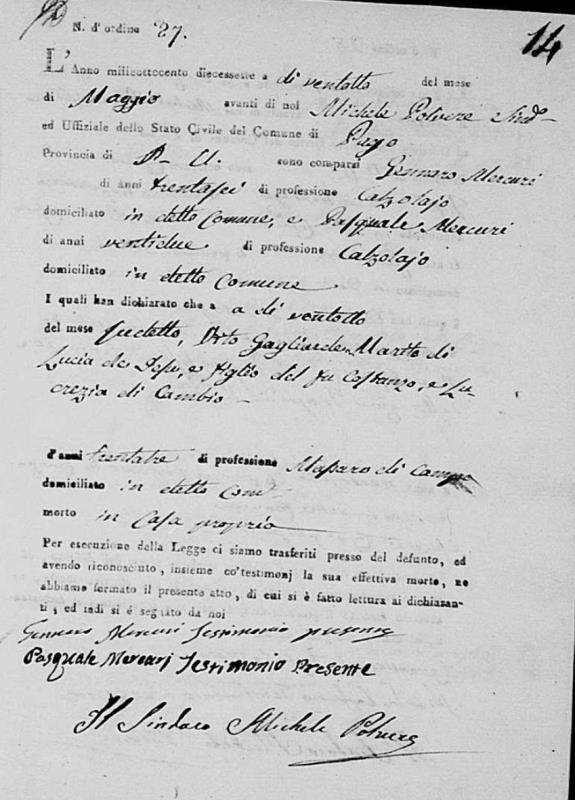 N. d'ordine 27.
14
L'Anno milleottocento diecessette a di ventotto del mese
di Maggio avanti di noi Michele Polvere Sind.
ed Uffiziale dello Stato Civile del Comune di Pago
Provincia di P. U. sono comparsi Gennaro Mercuri
di anni trentasei di professione Calzolajo
domiciliato in detto Comune, e Pasquale Mercuri
di anni ventidue di professione Calzolajo
domiciliato in detto Comune
I quali han dichiarato che a a di ventotto
del mese sudetto, Vito Gagliarde Marito di
Lucia de Jesu, e figlio del fu Costanzo, e Lu-
crezia di Cambio -
d'anni trentatre di professione di campo
domiciliato in detto Com.e
morto in Casa propria
Per esecuzione della Legge ci siamo trasferiti presso del defunto, ed
avendo riconosciuto, insieme co'testimonj la sua effettiva morte, ne
abbiamo formato il presente atto, di cui si è fatto lettura ai dichiaran-
ti, ed indi si è segnato da noi
Gennaro Mercuri Testimonio presente
Pasquale Mercurj Testimonio Presente
Il Sindaco Michele Polvere